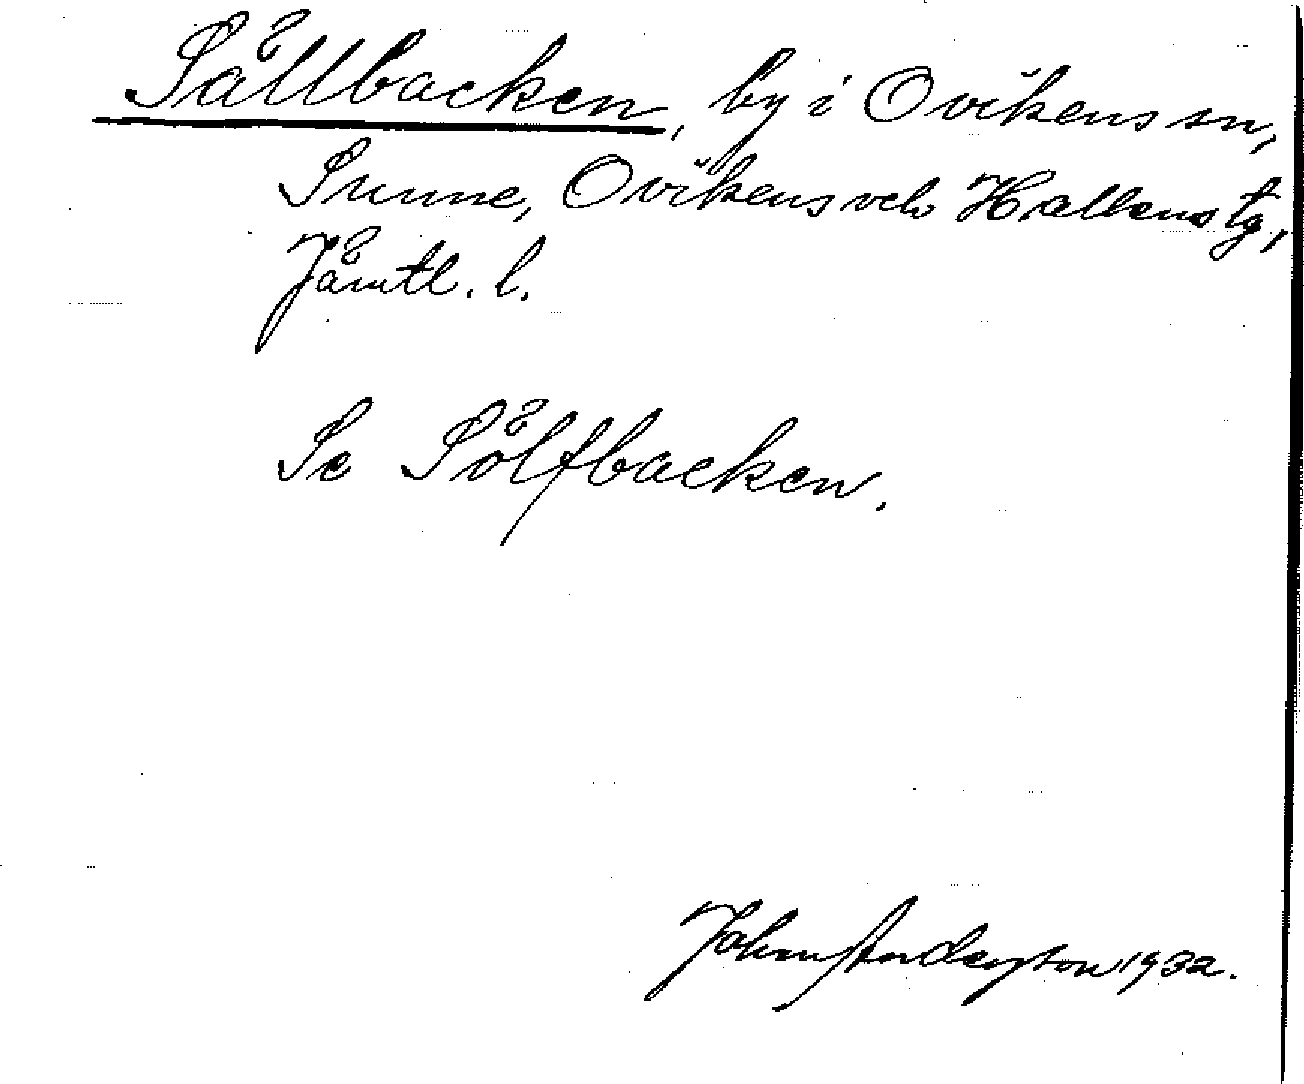 Sållbacken, by i Ovikens sn,
Sunne, Ovikens och Hallens tg,
Jämtl. l.
Se Sölfbacken.
John Andersson 1932.